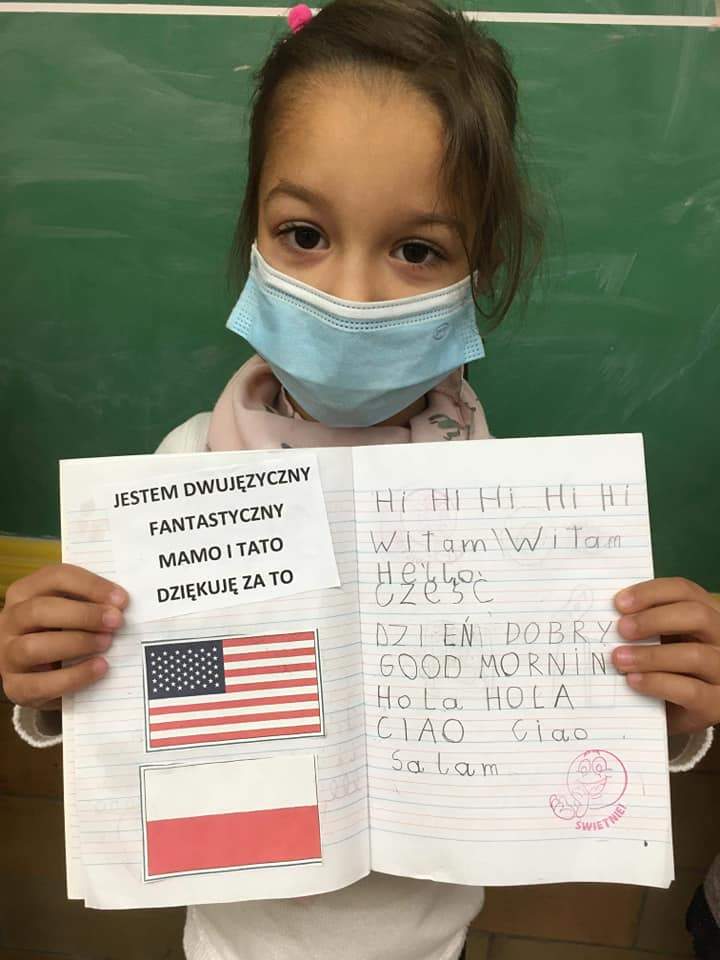 JESTEM DWUJĘZYCZNY
FANTASTYCZNY
MAMO I TATO
DZIĘKUJĘ ZA TO
Hi HI Hi Hi Hi
Witam\Witam
Hello.
CZEŚĆ
DZIEŃ DOBRY
GOOD MORNIN
HoLa HOLA
CIAO Ciao
Salam
ŚWIETNIE!